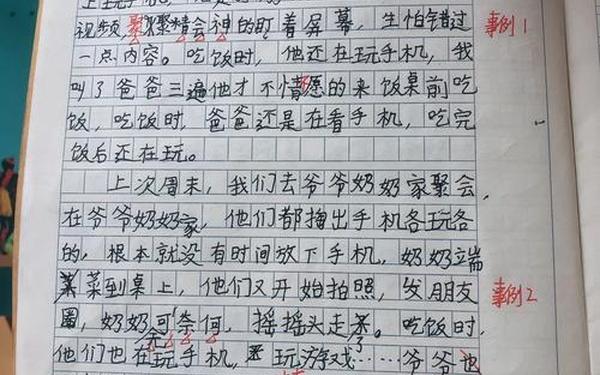 视频,聚聚精会神的盯着屏幕,生怕错过
事例1
一点内容。吃饭时,他还在玩手机,我
叫了爸爸三遍他才不情愿的来饭桌前吃
饭,吃饭时,爸爸还是在看手机,吃完
饭后还在玩。
上次周末,我们去爷爷奶奶家聚会,
在爷爷奶奶家,他们都掏出手机各玩各
的,根本就没有时间放下手机,奶奶端
菜到桌上,他们又开始拍照,发朋友
事例2
圈,奶奶无可奈何,摇摇头走了。吃饭时,
他们也在玩手机,玩游戏……爷爷也